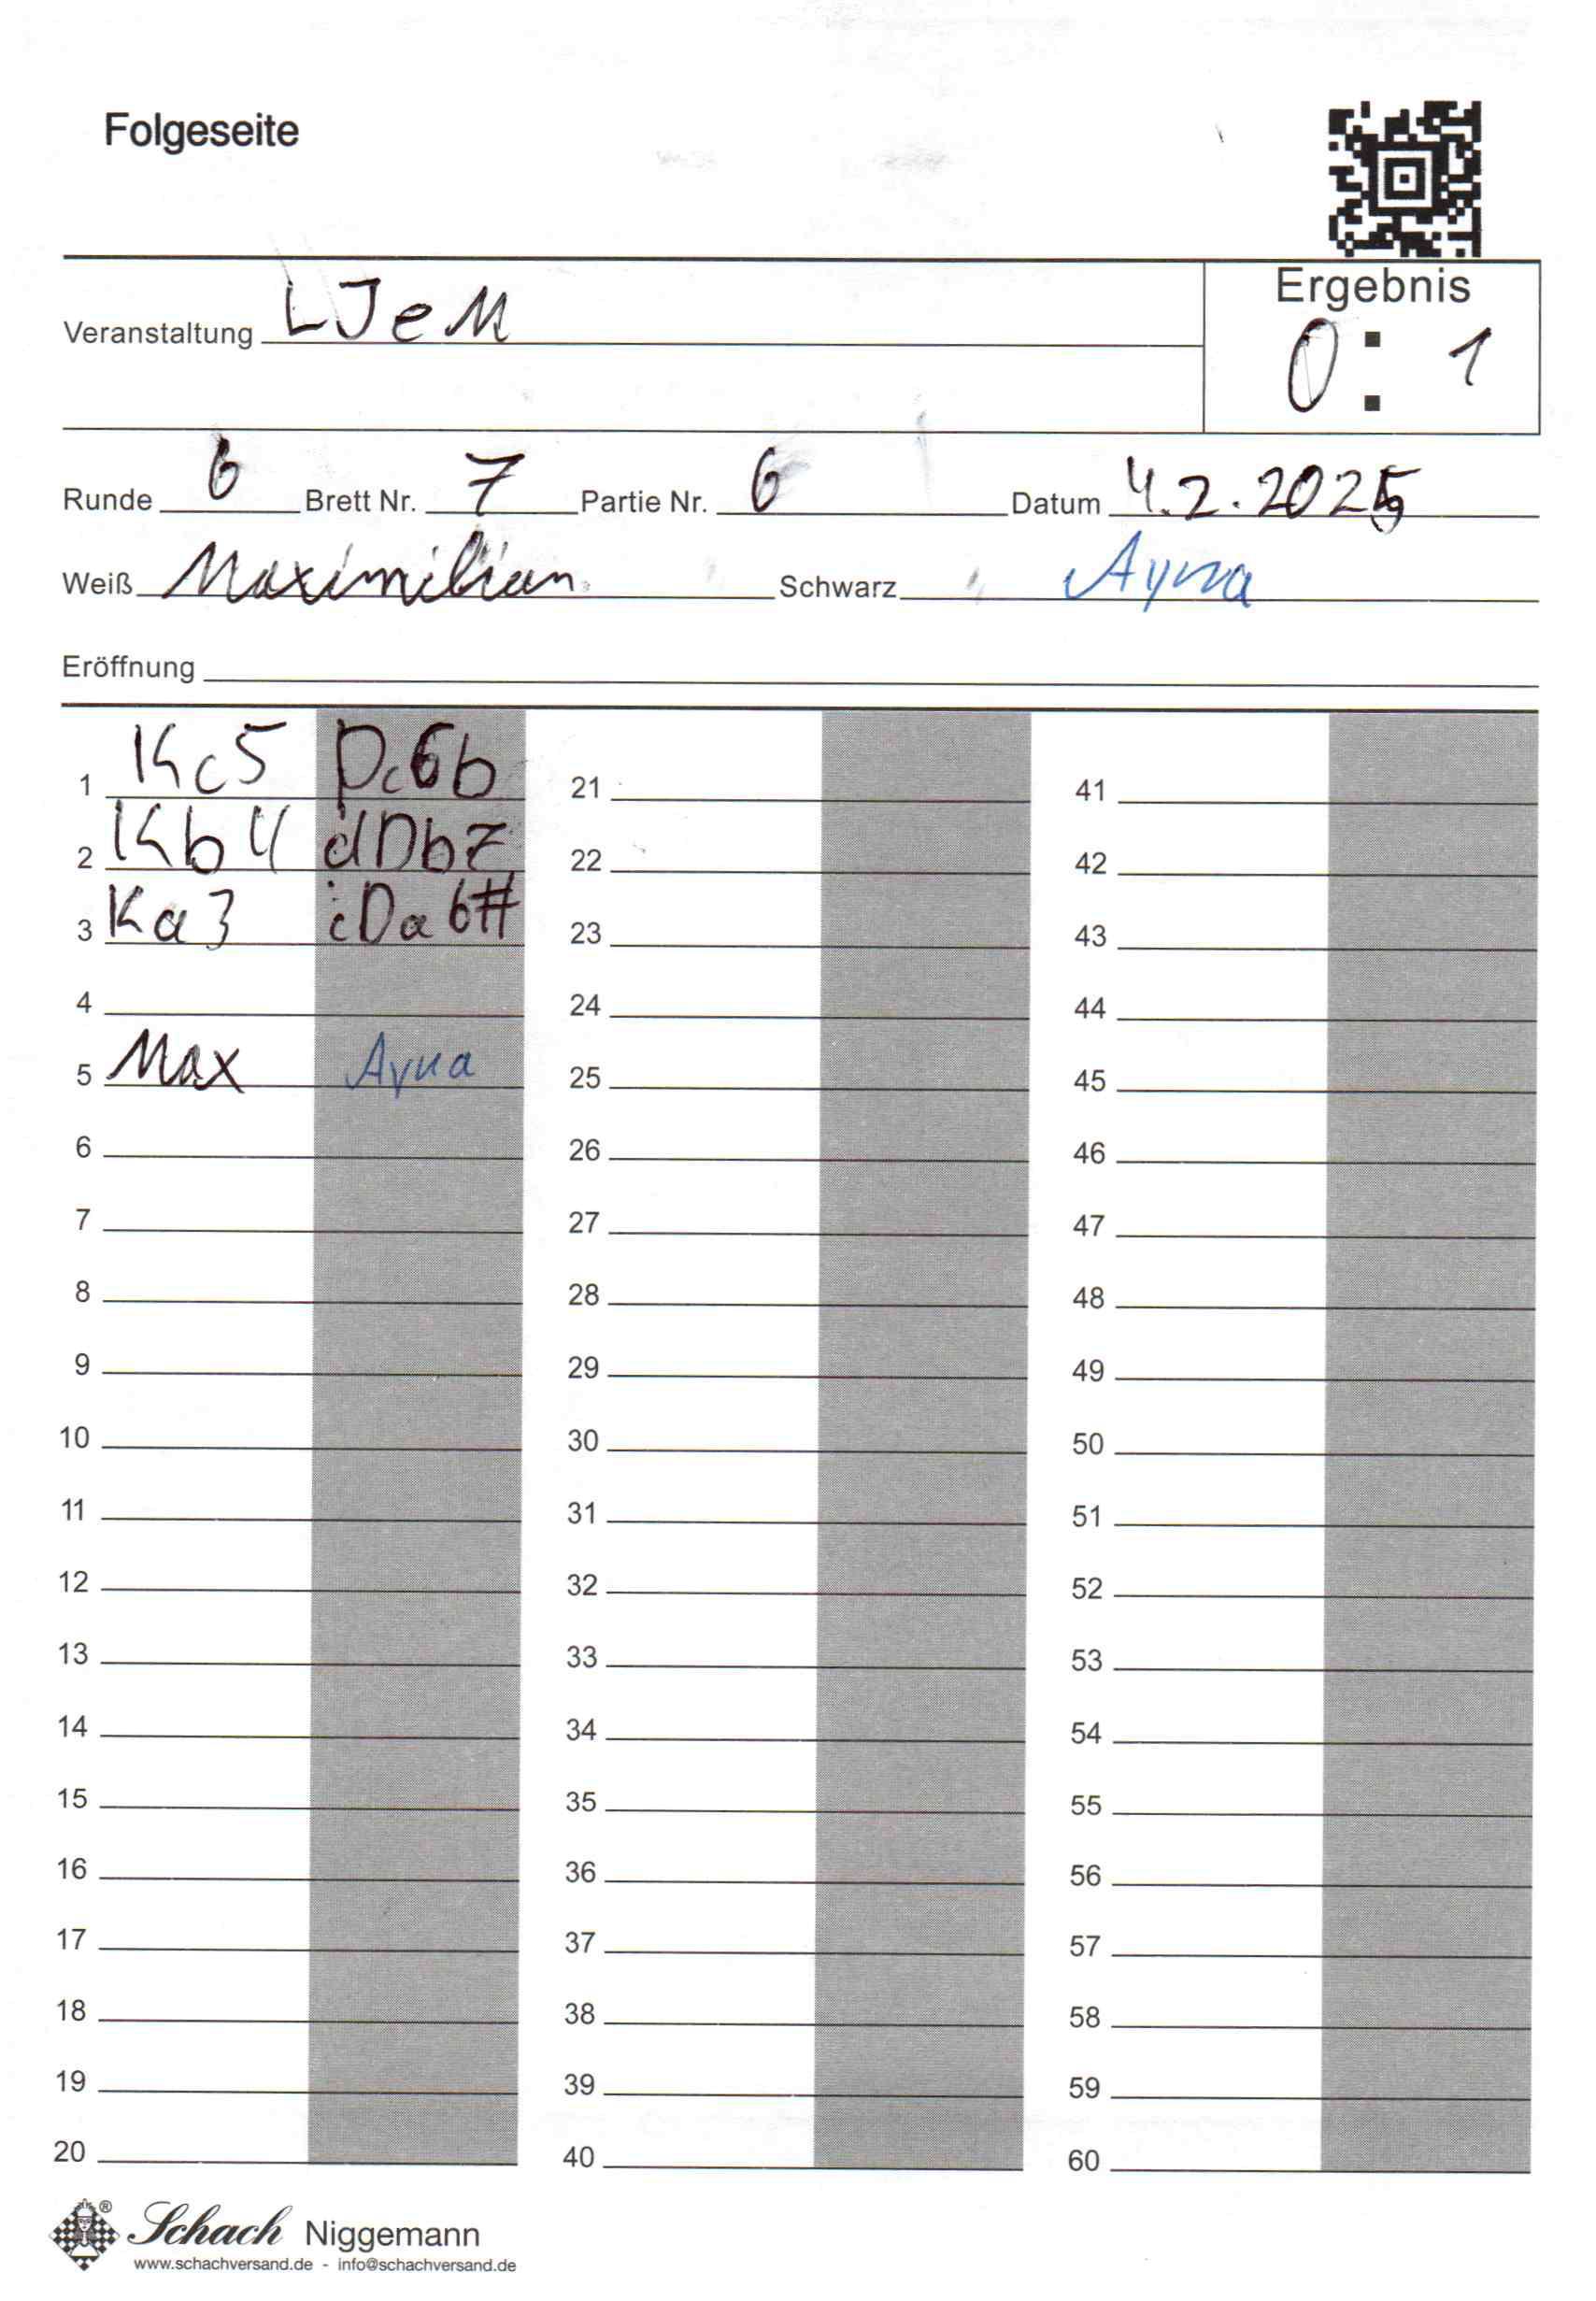 Folgeseite
Ergebnis
Veranstaltung LJeM
0 : 1
Runde 6 Brett Nr. 7 Partie Nr. 6 Datum 4.2.2025
Weiß Maximilian Schwarz Ayna
Eröffnung
1 Kc5 21 41
2 Kb4 dDb7 22 42
3 Ka3 cDa6# 23 43
4 24 44
5 Max Ayna 25 45
6 26 46
7 27 47
8 28 48
9 29 49
10 30 50
11 31 51
12 32 52
13 33 53
14 34 54
15 35 55
16 36 56
17 37 57
18 38 58
19 39 59
20 40 60
Schach Niggemann
www.schachversand.de - info@schachversand.de